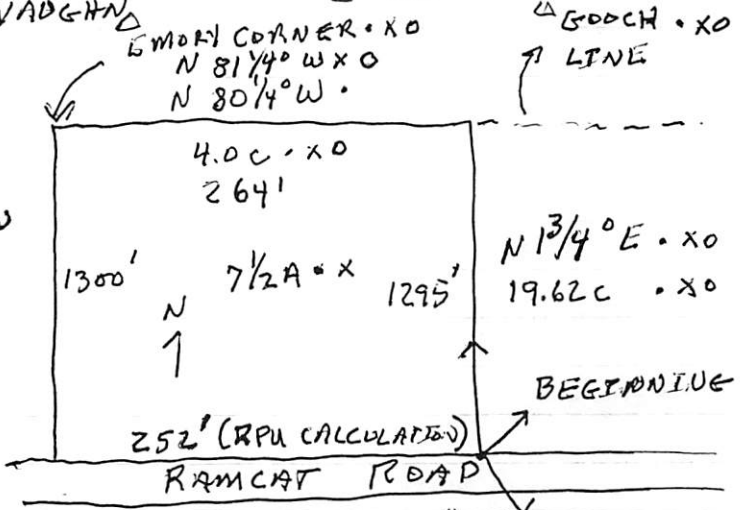 VAUGHN
EMORY CORNER • XO
N 81 1/4° W X O
N 80 1/4° W •
GOOCH • XO
LINE
4.0 C • XO
264'
1300'
7 1/2 A • X
1295'
N 1 3/4° E • XO
19.62 C • XO
N
BEGINNING
252' (RPU CALCULATION)
RAMCAT ROAD